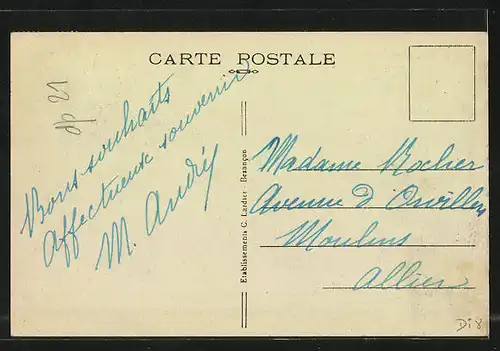 CARTE POSTALE
dp 21
Bons souhaits
Affectueux souvenir
M. André
Etablissements C. Lardier - Besançon
Madame Rocher
Avenue d'Orvilliers
Moulins
Allier
Di 8